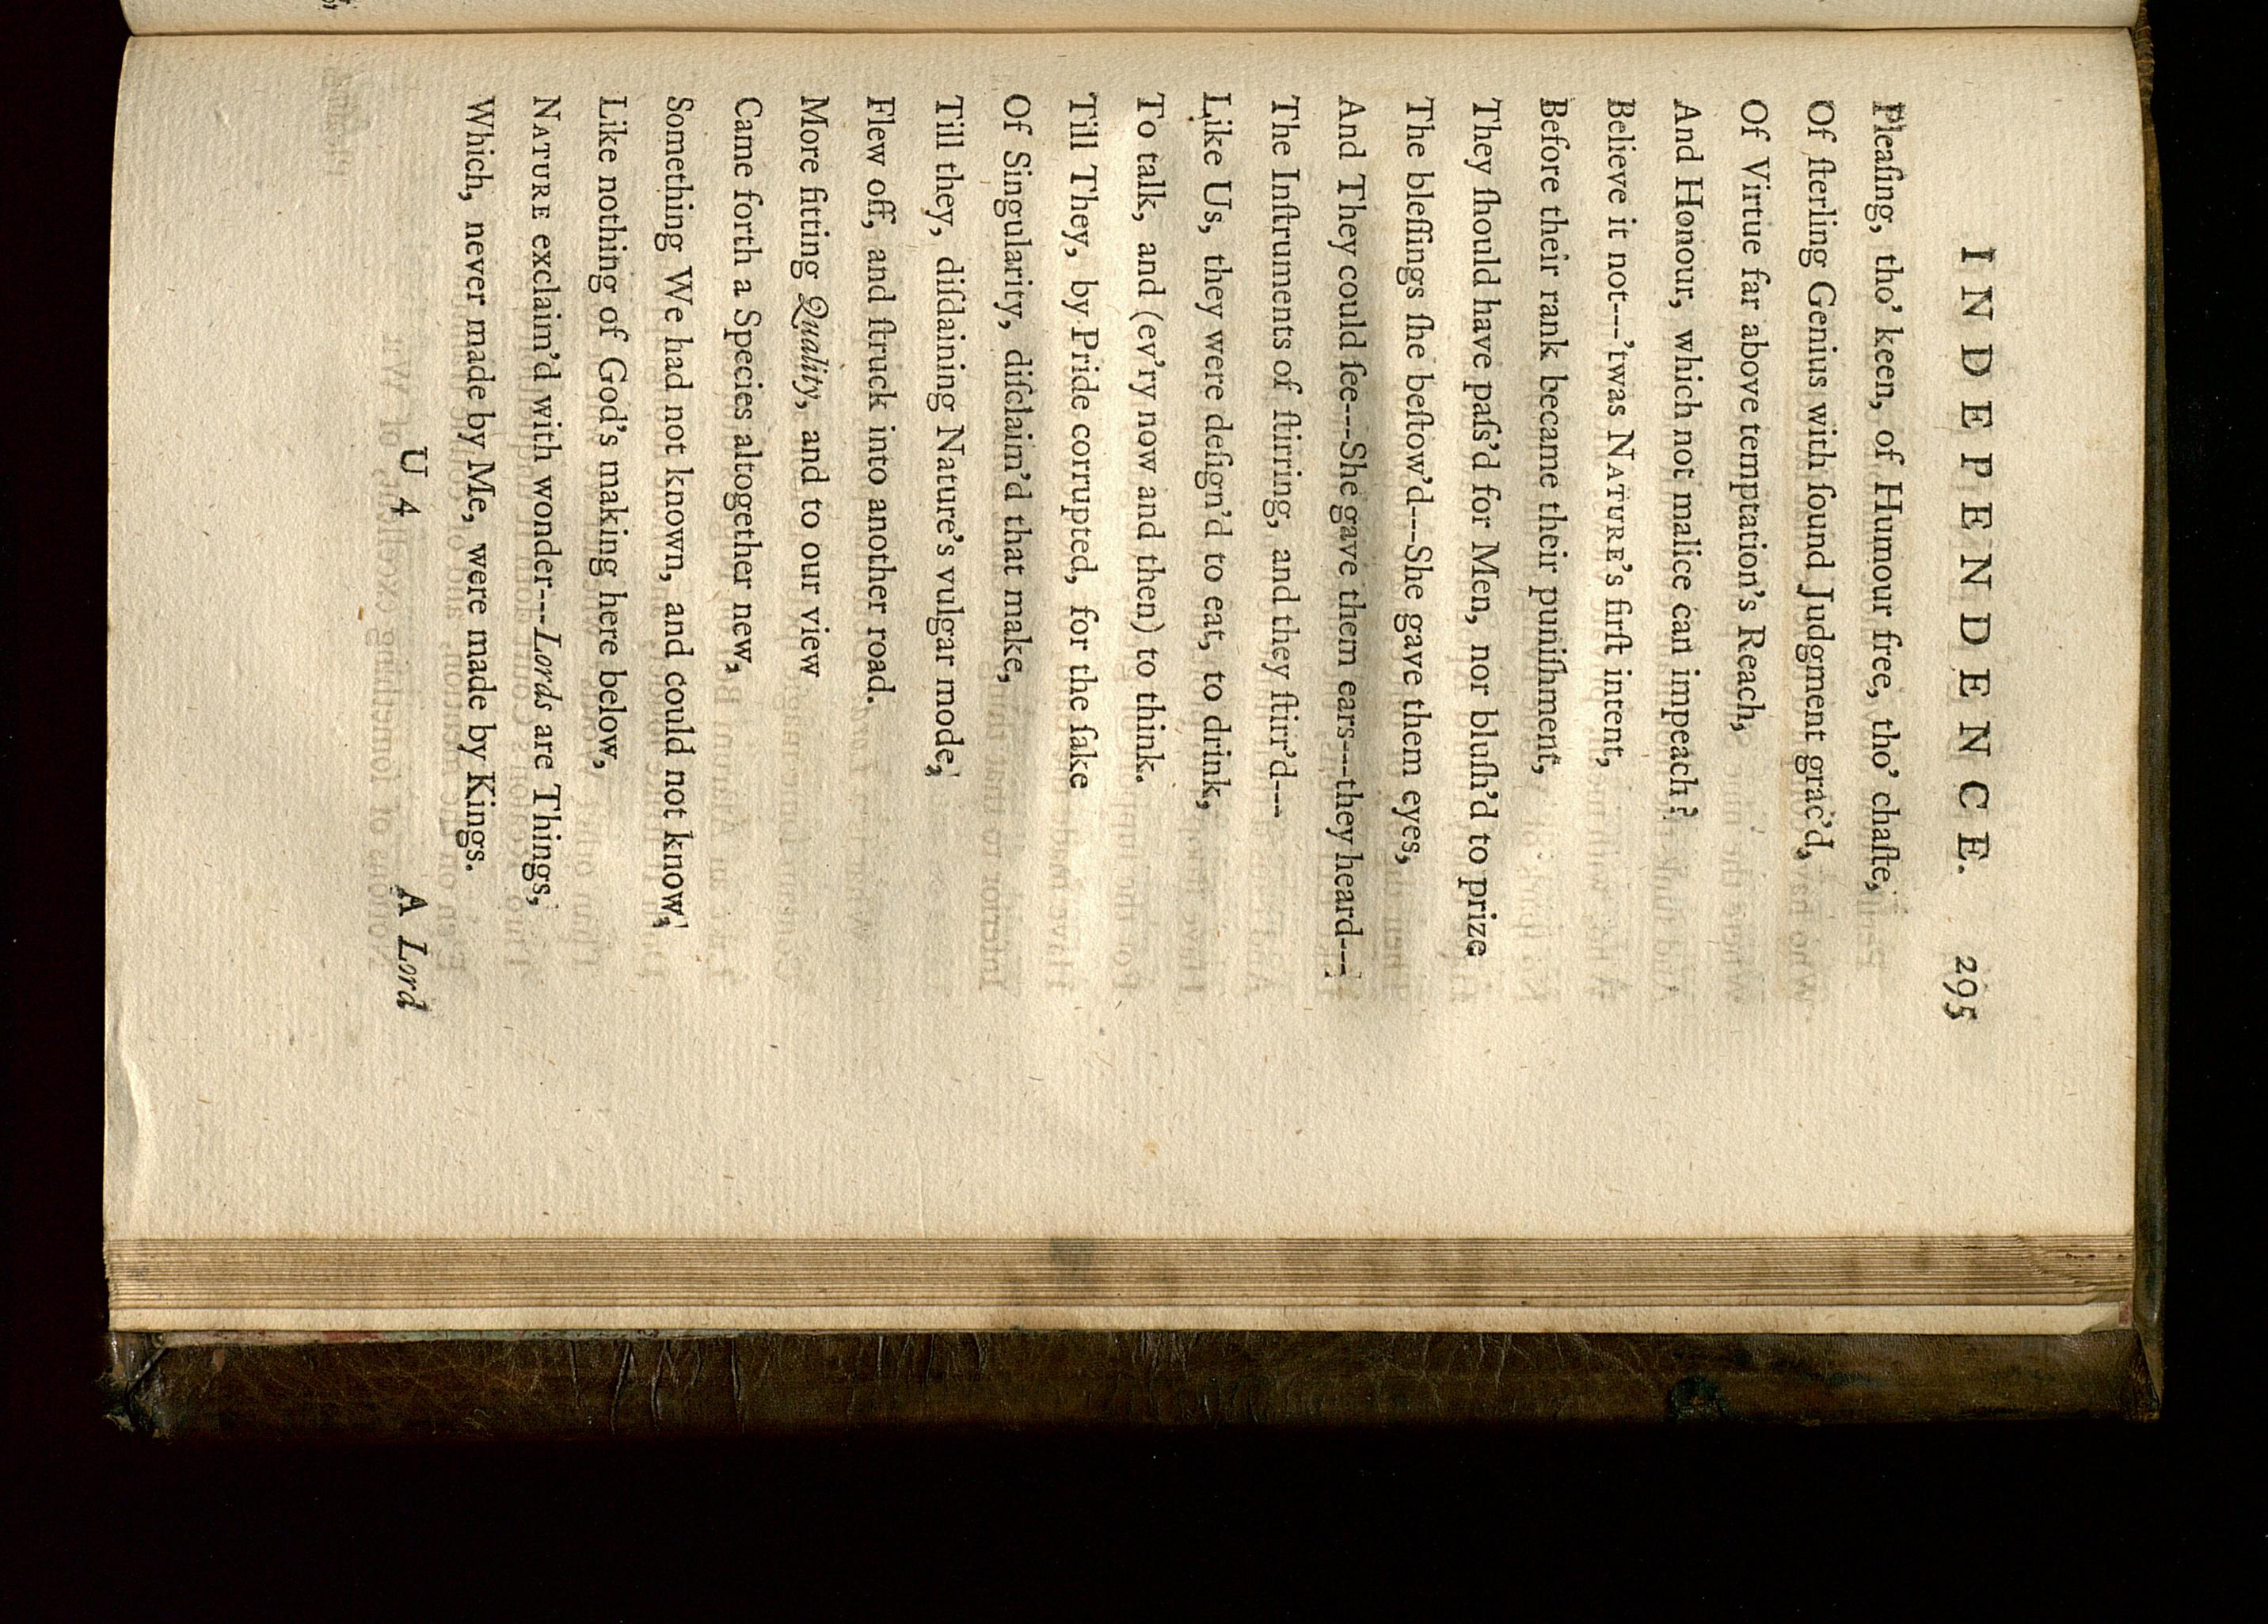 INDEPENDENCE. 295
Pleaſing, tho' keen, of Humour free, tho' chaſte,
Of ſterling Genius with ſound Judgment grac'd,
Of Virtue far above temptation's Reach,
And Honour, which not malice can impeach?
Believe it not---'twas NATURE's firſt intent,
Before their rank became their puniſhment,
They ſhould have paſs'd for Men, nor bluſh'd to prize
The bleſſings ſhe beſtow'd---She gave them eyes,
And They could ſee---She gave them ears---they heard---
The Inſtruments of ſtirring, and they ſtirr'd---
Like Us, they were deſign'd to eat, to drink,
To talk, and (ev'ry now and then) to think.
Till They, by Pride corrupted, for the ſake
Of Singularity, diſclaim'd that make,
Till they, diſdaining Nature's vulgar mode,
Flew off, and ſtruck into another road.
More fitting Quality, and to our view
Came forth a Species altogether new,
Something We had not known, and could not know,
Like nothing of God's making here below,
NATURE exclaim'd with wonder---Lords are Things,
Which, never made by Me, were made by Kings.
U 4 A Lord